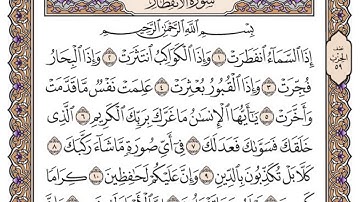 سورة الانفطار
بِسْمِ ٱللَّهِ ٱلرَّحْمَٰنِ ٱلرَّحِيمِ
إِذَا ٱلسَّمَآءُ ٱنفَطَرَتْ ١ وَإِذَا ٱلْكَوَاكِبُ ٱنتَثَرَتْ ٢ وَإِذَا ٱلْبِحَارُ
فُجِّرَتْ ٣ وَإِذَا ٱلْقُبُورُ بُعْثِرَتْ ٤ عَلِمَتْ نَفْسٌ مَّا قَدَّمَتْ
وَأَخَّرَتْ ٥ يَٰٓأَيُّهَا ٱلْإِنسَٰنُ مَا غَرَّكَ بِرَبِّكَ ٱلْكَرِيمِ ٦ ٱلَّذِى
خَلَقَكَ فَسَوَّىٰكَ فَعَدَلَكَ ٧ فِىٓ أَىِّ صُورَةٍ مَّا شَآءَ رَكَّبَكَ ٨
كَلَّا بَلْ تُكَذِّبُونَ بِٱلدِّينِ ٩ وَإِنَّ عَلَيْكُمْ لَحَٰفِظِينَ ١٠ كِرَامًا
الحزب
٥٩